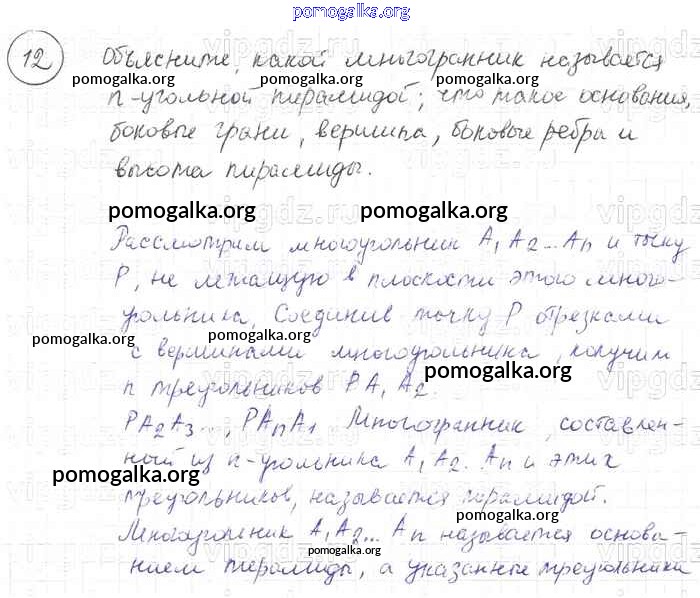 pomogalka.org
12 Объясните, какой многогранник называется
pomogalka.org pomogalka.org
n-угольной пирамидой; что такое основания,
боковые грани, вершина, боковые ребра и
высота пирамиды.
pomogalka.org pomogalka.org
Рассмотрим многоугольник A₁A₂...Aₙ и точку
P, не лежащую в плоскости этого много-
угольника. Соединив точку P отрезками
pomogalka.org pomogalka.org
с вершинами многоугольника, получим
pomogalka.org
n треугольников PA₁A₂.
PA₂A₃..., PAₙA₁. Многогранник, составлен-
ный из n-угольника A₁A₂..Aₙ и этих
pomogalka.org
треугольников, называется пирамидой.
pomogalka.org
Многоугольник A₁A₂... Aₙ называется основа-
pomogalka.org
нием пирамиды, а указанные треугольники